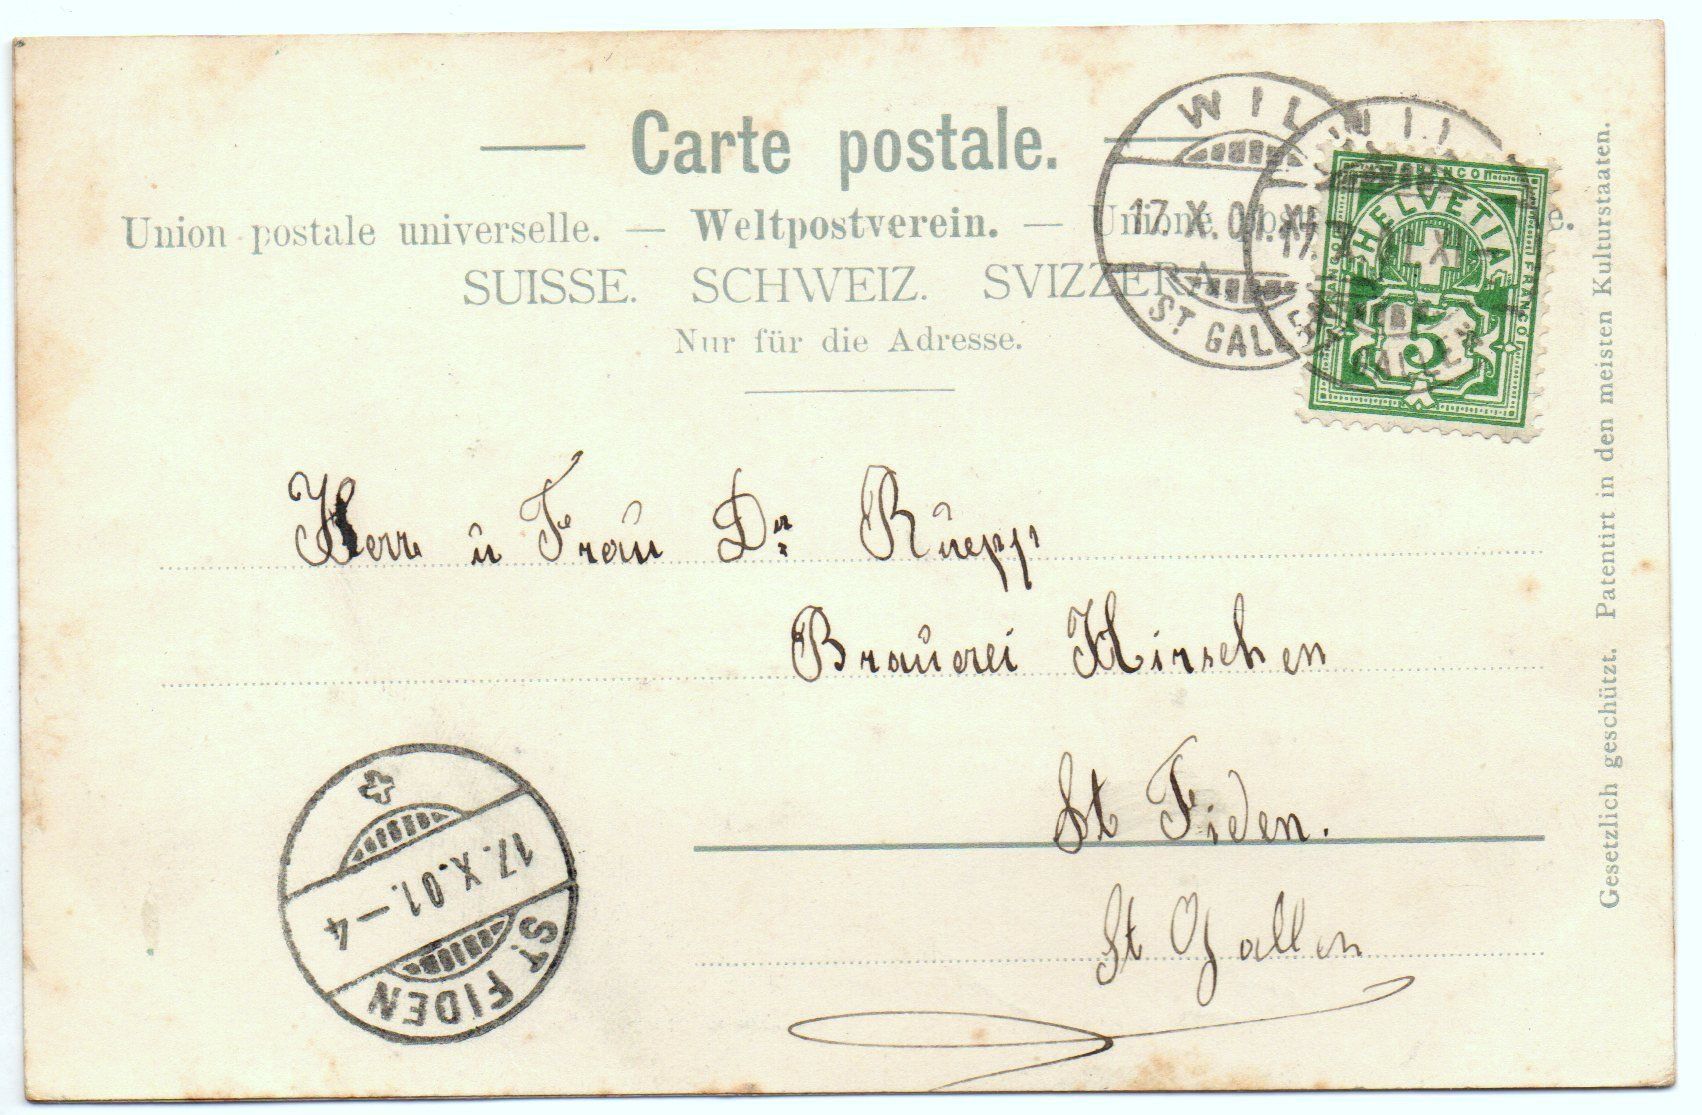 Carte postale.
Union postale universelle. — Weltpostverein. — Unione
SUISSE. SCHWEIZ. SVIZZERA
Nur für die Adresse.
WIL
17. X. 01. XI
ST GALLEN
WIL
17.
GALLEN
FRANCO
HELVETIA
FRANCO
5
Herr u Frau Dr. Ruepp
Brauerei Hirschen
St Fiden.
St Gallen
17. X. 01. – 4
ST FIDEN
Gesetzlich geschützt. Patentirt in den meisten Kulturstaaten.